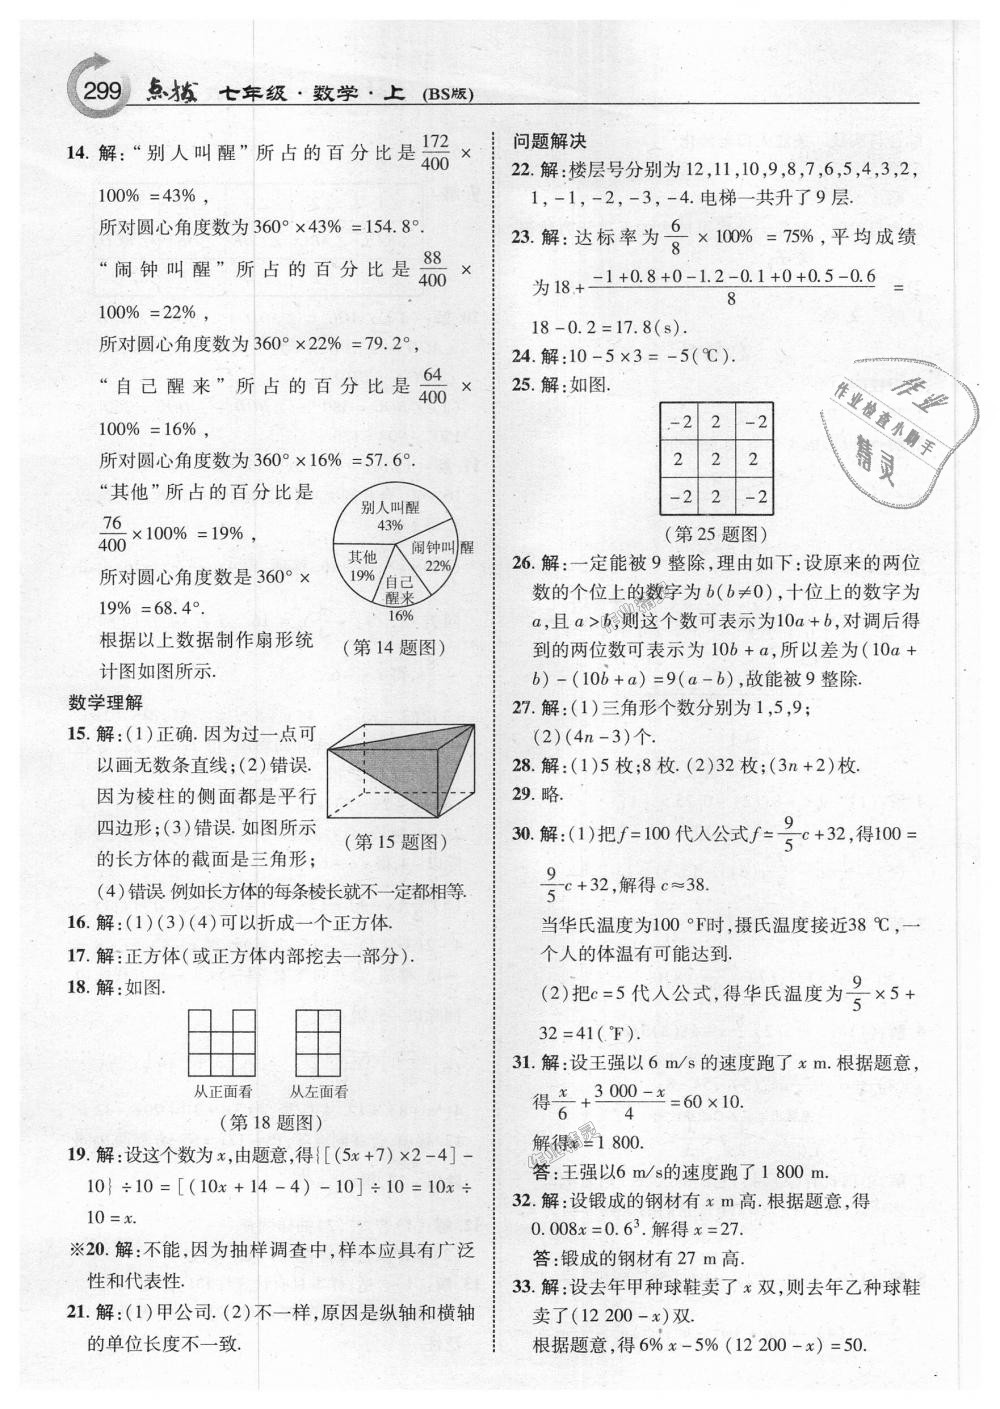 299 点拨 七年级·数学·上 (BS版)
14. 解:“别人叫醒”所占的百分比是 172/400 ×
100% =43% ,
所对圆心角度数为360° ×43% =154. 8°.
“闹钟叫醒”所占的百分比是 88/400 ×
100% =22% ,
所对圆心角度数为360° ×22% =79. 2° ,
“自己醒来”所占的百分比是 64/400 ×
100% =16% ,
所对圆心角度数为360° ×16% =57. 6°.
“其他”所占的百分比是
76/400 ×100% =19% ,
所对圆心角度数是 360° ×
19% =68. 4°.
根据以上数据制作扇形统
计图如图所示.
别人叫醒
43%
闹钟叫醒
22%
其他
19%
自己
醒来
16%
(第 14 题图)
数学理解
15. 解:(1)正确. 因为过一点可
以画无数条直线;(2)错误.
因为棱柱的侧面都是平行
四边形;(3)错误. 如图所示
的长方体的截面是三角形;
(第 15 题图)
(4)错误. 例如长方体的每条棱长就不一定都相等.
16. 解:(1)(3)(4)可以折成一个正方体.
17. 解:正方体(或正方体内部挖去一部分).
18. 解:如图.
从正面看 从左面看
(第 18 题图)
19. 解:设这个数为 x,由题意,得{[(5x+7) ×2-4]-
10} ÷10 = [(10x + 14 - 4) - 10] ÷ 10 = 10x ÷
10 = x.
※20. 解:不能,因为抽样调查中,样本应具有广泛
性和代表性.
21. 解:(1)甲公司. (2)不一样,原因是纵轴和横轴
的单位长度不一致.
问题解决
22. 解:楼层号分别为 12,11,10,9,8,7,6,5,4,3,2,
1, -1, -2, -3, -4. 电梯一共升了 9 层.
23. 解:达标率为 6/8 × 100% = 75% ,平均成绩
为 18 + (-1+0.8+0-1.2-0.1+0+0.5-0.6)/8 =
18 -0. 2 =17. 8(s).
24. 解:10 -5 ×3 = -5(℃).
25. 解:如图.
-2 2 -2
2 2 2
-2 2 -2
(第 25 题图)
26. 解:一定能被 9 整除,理由如下:设原来的两位
数的个位上的数字为 b(b≠0),十位上的数字为
a,且 a > b,则这个数可表示为10a + b,对调后得
到的两位数可表示为 10b + a,所以差为(10a +
b) - (10b + a) =9(a - b),故能被 9 整除.
27. 解:(1)三角形个数分别为 1,5,9;
(2)(4n -3)个.
28. 解:(1)5 枚;8 枚. (2)32 枚;(3n +2)枚.
29. 略.
30. 解:(1)把 f =100 代入公式 f = 9/5 c +32,得100 =
9/5 c +32,解得 c≈38.
当华氏温度为100 °F时,摄氏温度接近38 ℃,一
个人的体温有可能达到.
(2)把c =5 代入公式,得华氏温度为 9/5 ×5 +
32 =41(℉).
31. 解:设王强以 6 m/s 的速度跑了 x m. 根据题意,
得 x/6 + (3 000 - x)/4 =60 ×10.
解得x =1 800.
答:王强以6 m/s的速度跑了 1 800 m.
32. 解:设锻成的钢材有 x m 高. 根据题意,得
0. 008x = 0. 6³. 解得 x =27.
答:锻成的钢材有 27 m 高.
33. 解:设去年甲种球鞋卖了 x 双,则去年乙种球鞋
卖了(12 200 - x)双.
根据题意,得 6% x -5% (12 200 - x) =50.
作业
作业检查小助手
精灵
作业精灵
作业精灵